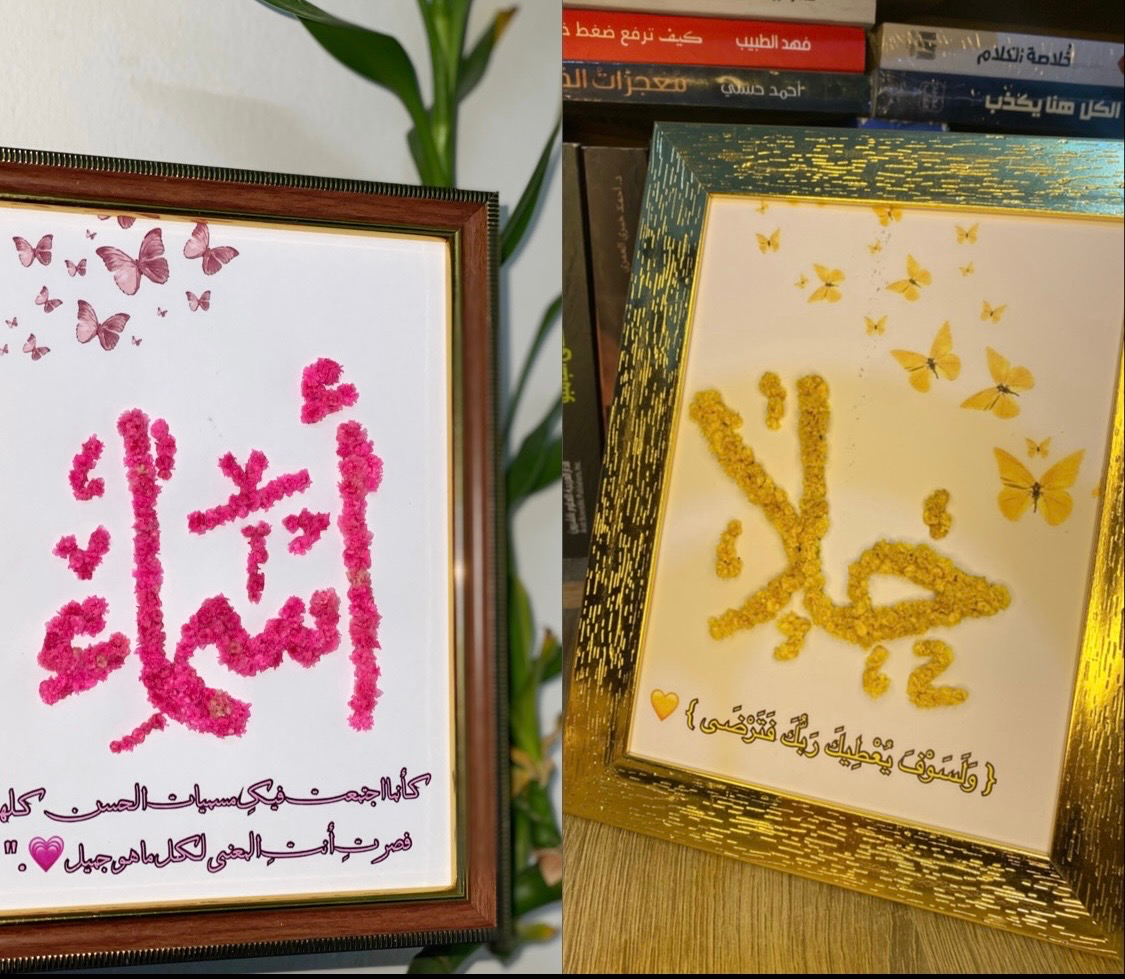 أسماء
كأنما اجتمعت فيكِ مسميات الحسن كلها
فصرتِ أنتِ المعنى لكل ما هو جميل💗."
فهد الطبيب كيف ترفع ضغط
أحمد حسني معجزات
خلاصة الكلام
الكل هنا يكذب
د. أحمد خيري العمري
{ وَلَسَوْفَ يُعْطِيكَ رَبُّكَ فَتَرْضَى } 💛